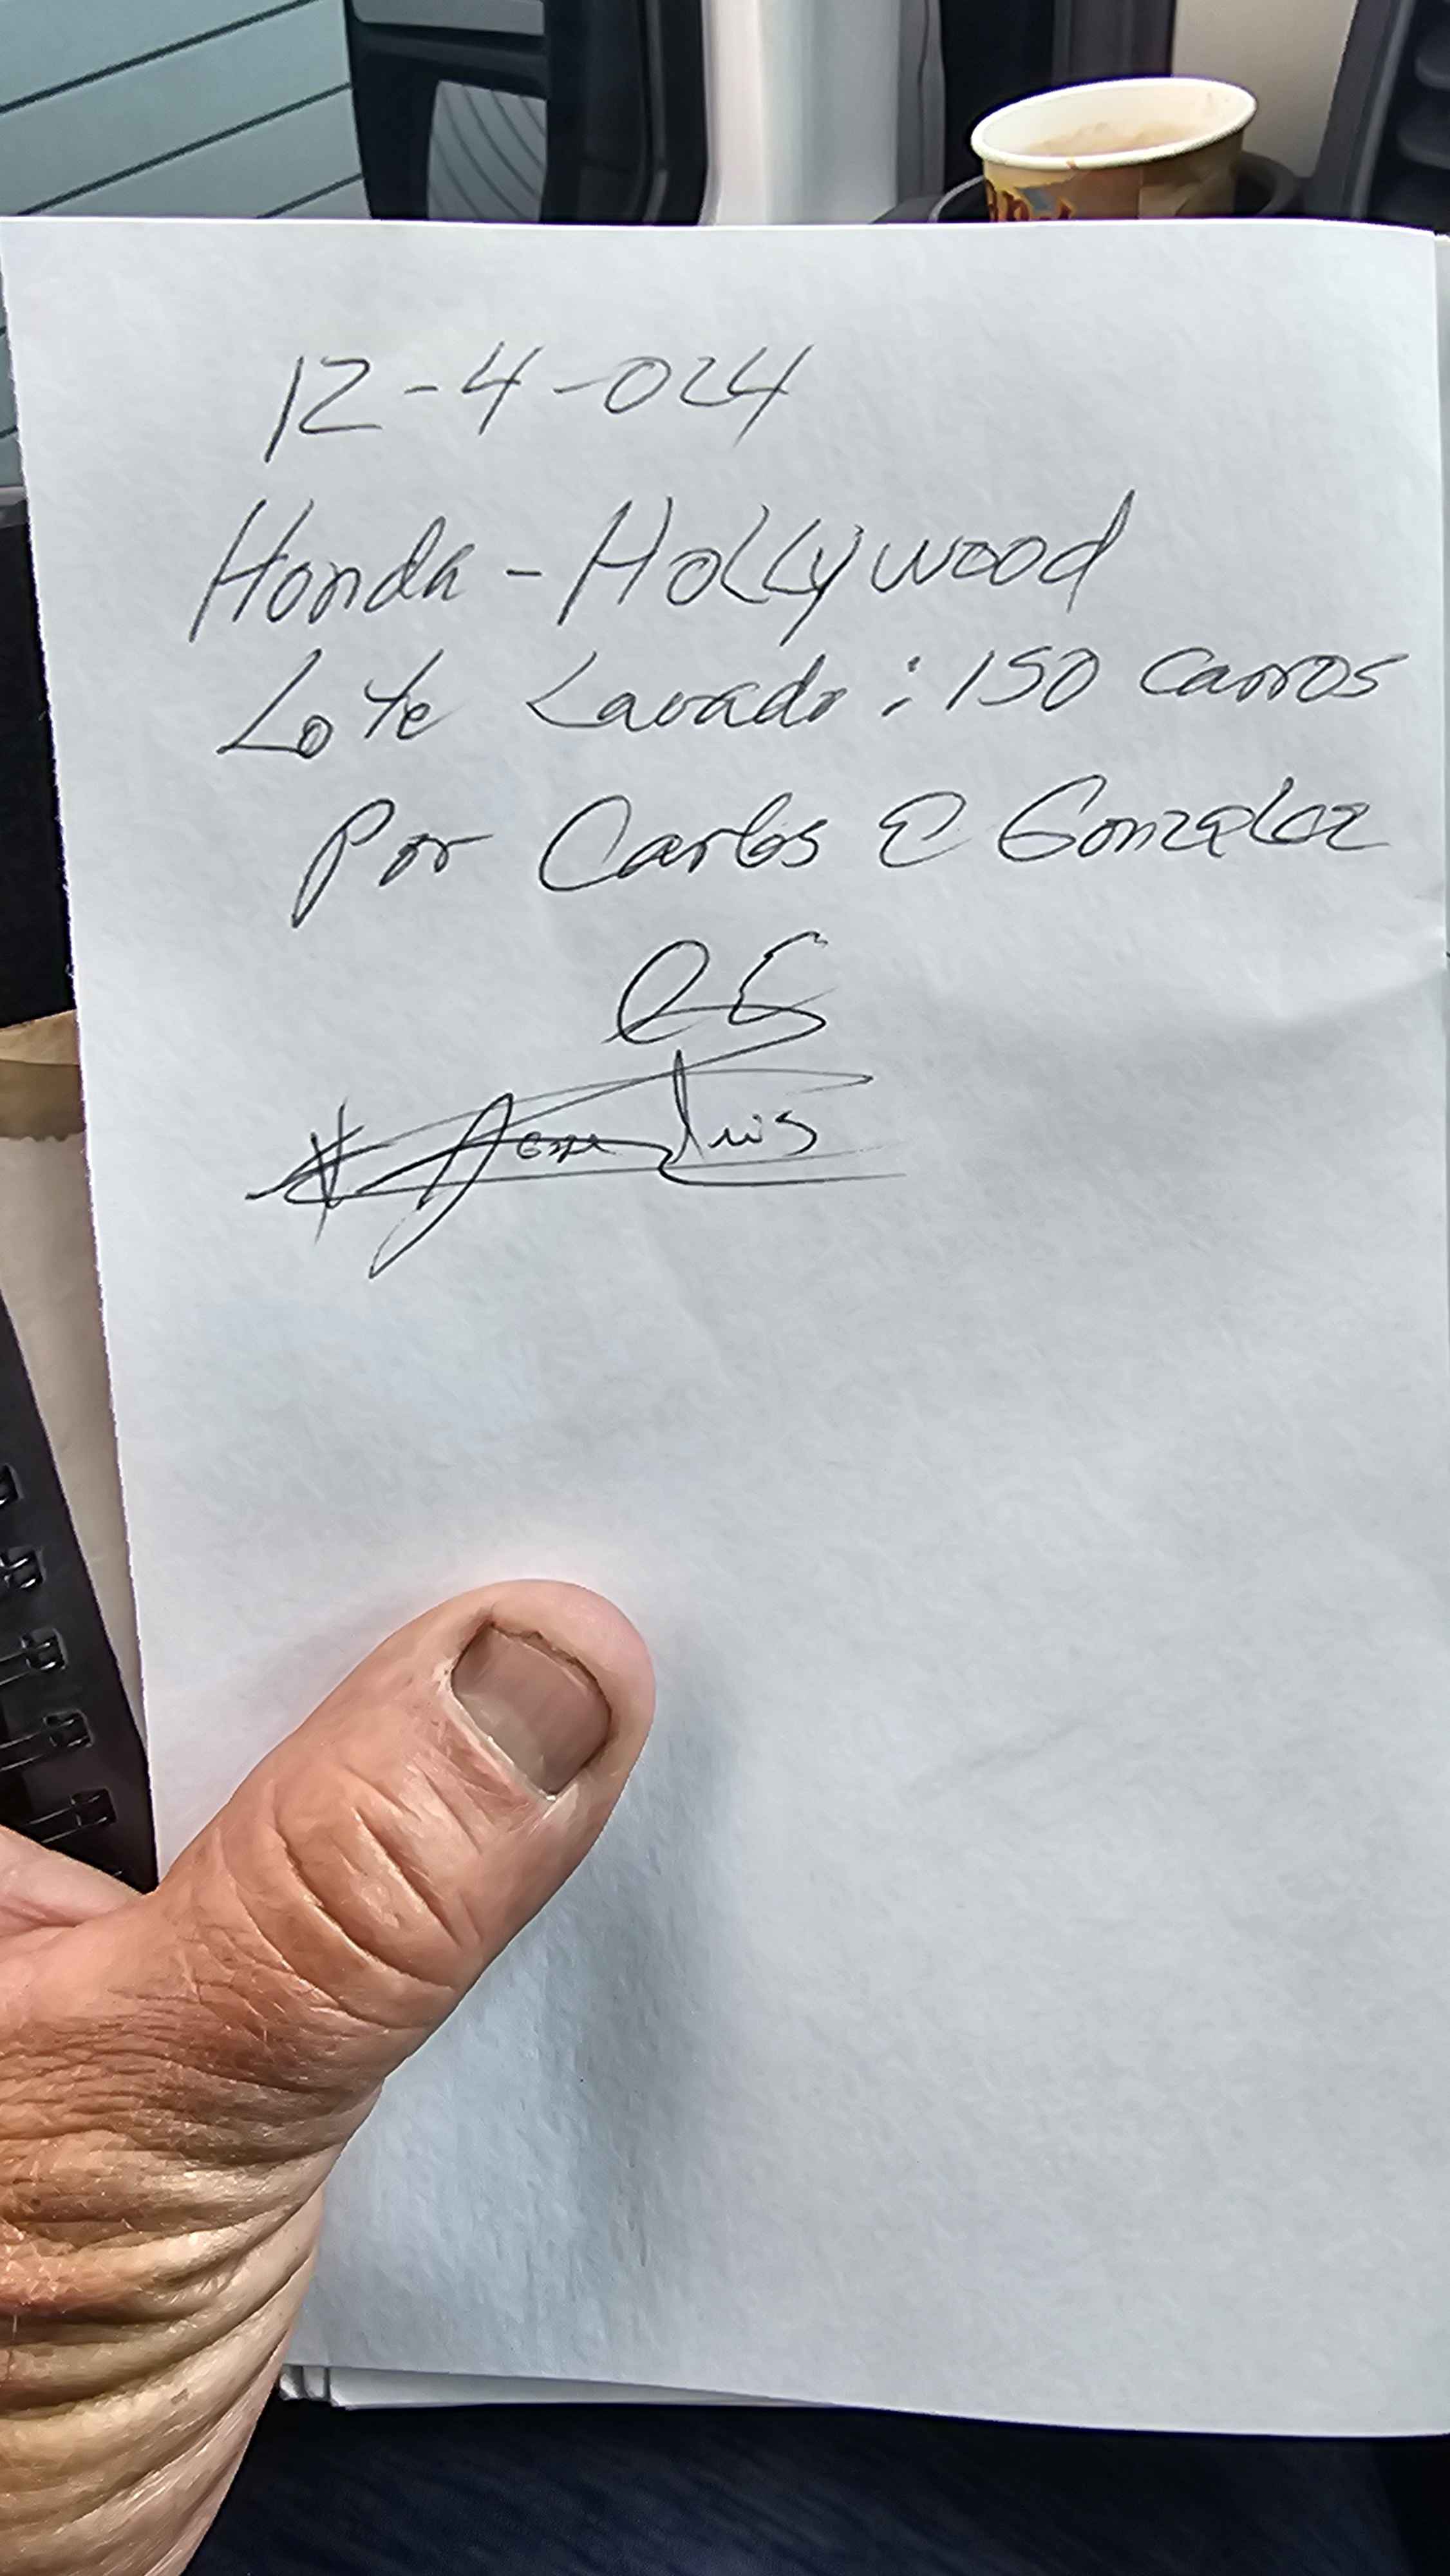 12-4-024
Honda - Hollywood
Lote Lavado : 150 carros
Por Carlos E Gonzalez
Luis